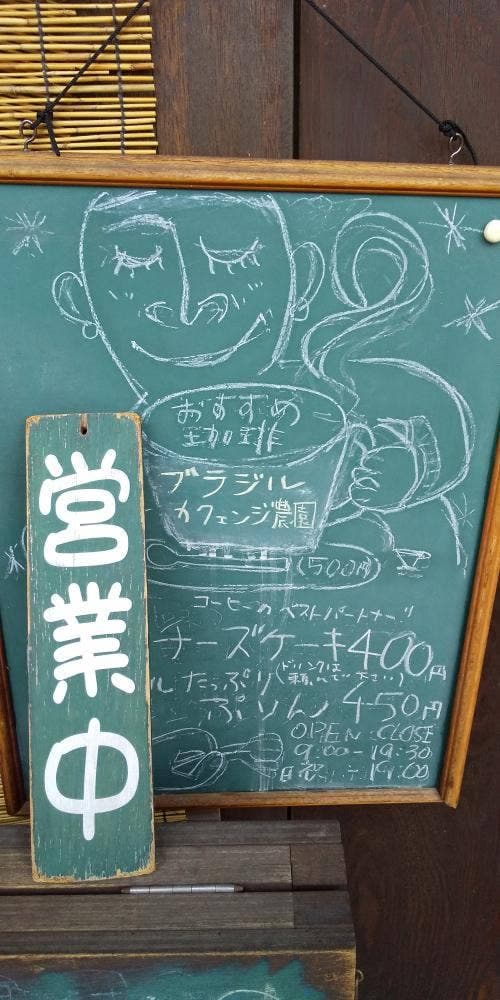 営業中
おすすめ
珈琲
ブラジル
カフェンジ農園
(500円)
コーヒーの ベストパートナー!!
チーズケーキ400円
(ドリンクは
頼んで下さい)
たっぷり
ぷりん 450円
OPEN CLOSE
9:00-19:30
日祝 19:00